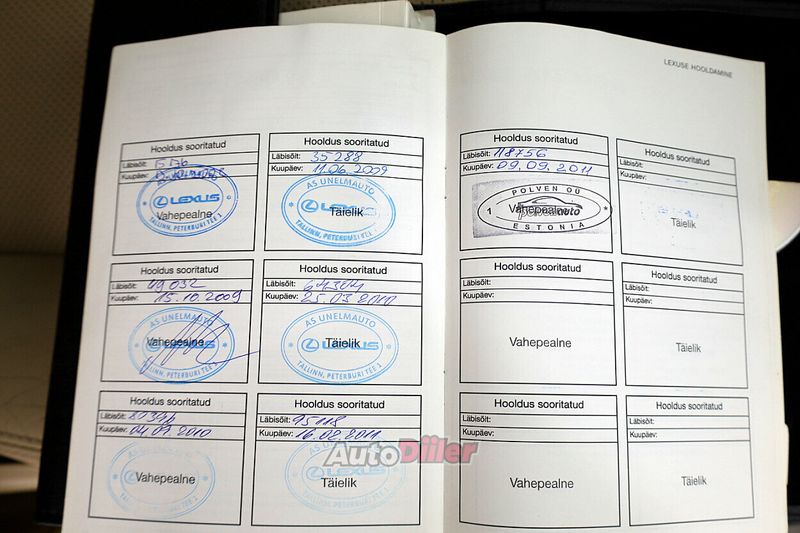 LEXUSE HOOLDAMINE
Hooldus sooritatud
Läbisõit:
Kuupäev:
LEXUS
Vahepealne
TALLINN, PETERBURI TEE 1
Hooldus sooritatud
Läbisõit: 35288
Kuupäev: 11.06.2009
AS UNELMAUTO
LEXUS
Täielik
TALLINN, PETERBURI TEE 1
Hooldus sooritatud
Läbisõit: 49032
Kuupäev: 15.10.2009
AS UNELMAUTO
LEXUS
Vahepealne
TALLINN, PETERBURI TEE 1
Hooldus sooritatud
Läbisõit: 64304
Kuupäev: 25.03.2010
AS UNELMAUTO
LEXUS
Täielik
TALLINN, PETERBURI TEE 1
Hooldus sooritatud
Läbisõit:
Kuupäev: 04.09.2010
AS UNELMAUTO
LEXUS
Vahepealne
TALLINN, PETERBURI TEE 1
Hooldus sooritatud
Läbisõit: 95118
Kuupäev: 16.02.2011
AS UNELMAUTO
LEXUS
Täielik
Hooldus sooritatud
Läbisõit: 118756
Kuupäev: 09.09.2011
POLVEN OÜ
1 Vahepealne auto
ESTONIA
Hooldus sooritatud
Läbisõit:
Kuupäev:
Täielik
Hooldus sooritatud
Läbisõit:
Kuupäev:
Vahepealne
Hooldus sooritatud
Läbisõit:
Kuupäev:
Täielik
Hooldus sooritatud
Läbisõit:
Kuupäev:
Vahepealne
Hooldus sooritatud
Läbisõit:
Kuupäev:
Täielik
AutoDiiler